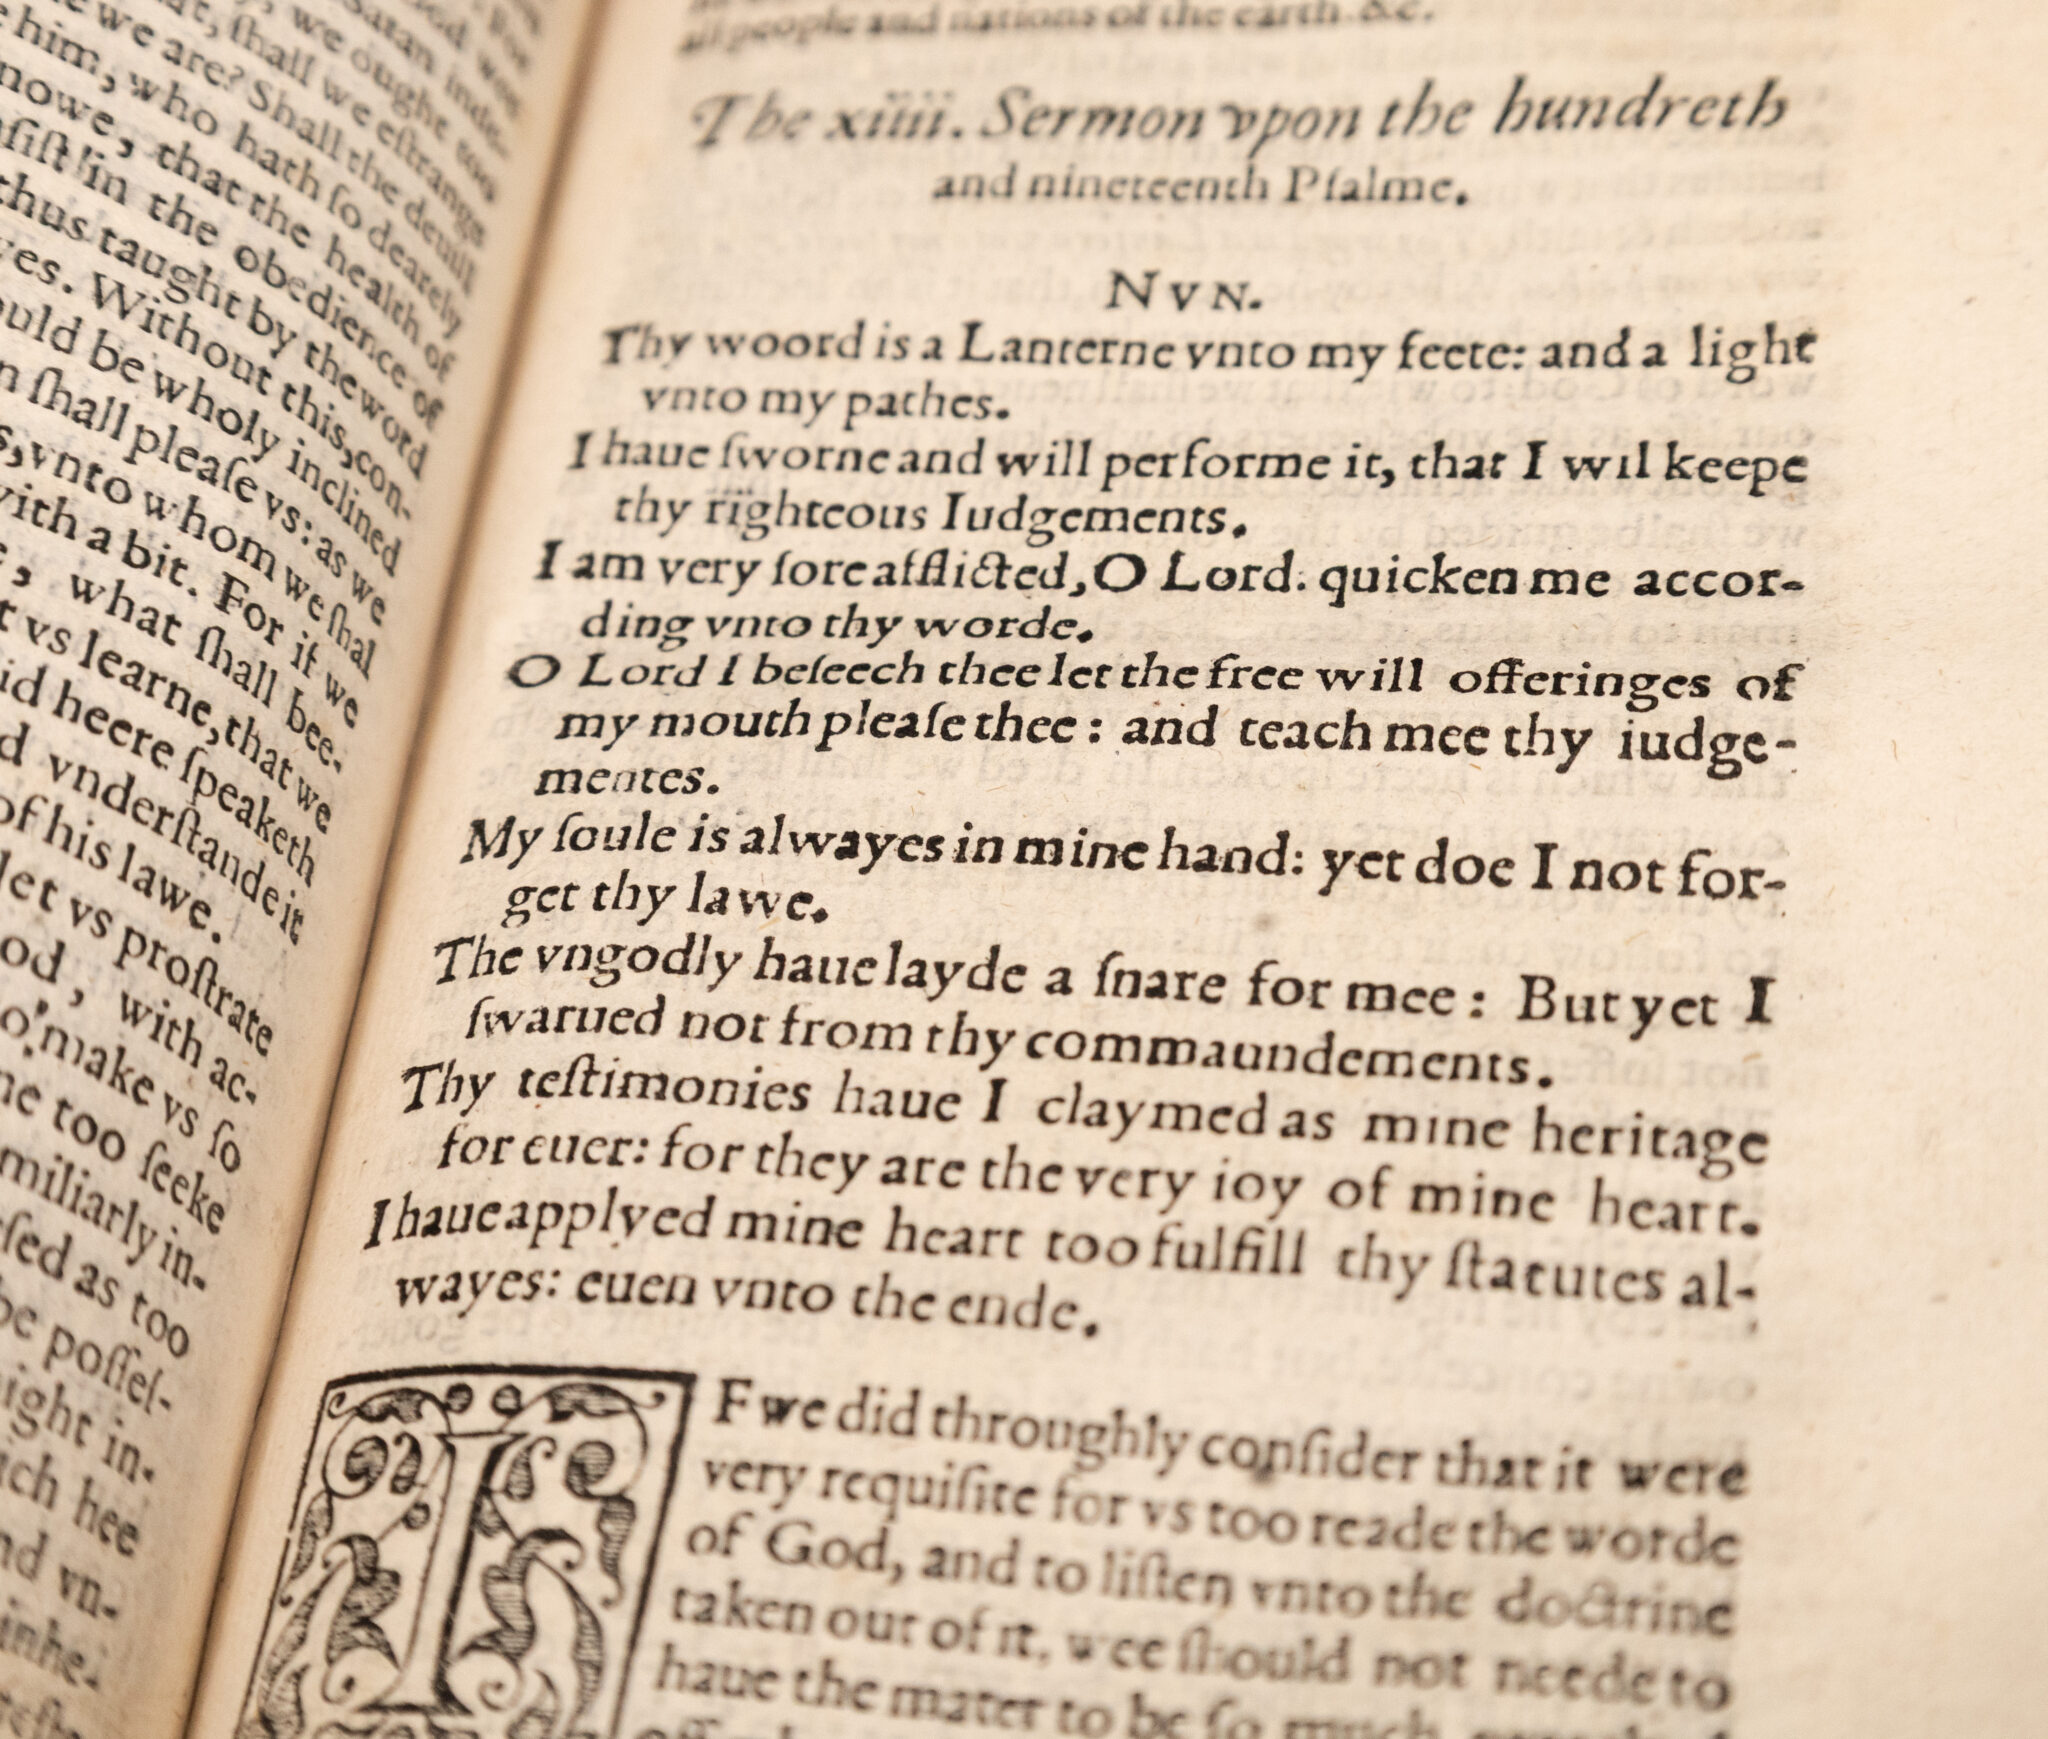 we are? Shall the deuill
him, who hath ſo dearely
nowe, that the health of
ſiſt in the obedience of
thus taught by the word
Without this, con-
ould be wholy inclined
ſhall pleaſe vs: as we
vnto whom we ſhal
with a bit. For if we
what ſhall bee-
vs learne, that we
heere ſpeaketh
vnderſtande it
of his lawe.
let vs proſtrate
with ac-
make vs ſo
too ſeeke
in-
as too
be poſſeſ-
in-
hee
vn-
all people and nations of the earth &c.
The xiiii. Sermon vpon the hundreth
and nineteenth Pſalme.
NVN.
Thy woord is a Lanterne vnto my feete: and a light
vnto my pathes.
I haue ſworne and will performe it, that I wil keepe
thy righteous Iudgements.
I am very ſore afflicted, O Lord: quicken me accor-
ding vnto thy worde.
O Lord I beſeech thee let the free will offeringes of
my mouth pleaſe thee: and teach mee thy iudge-
mentes.
My ſoule is alwayes in mine hand: yet doe I not for-
get thy lawe.
The vngodly haue layde a ſnare for mee: But yet I
ſwarued not from thy commaundements.
Thy teſtimonies haue I claymed as mine heritage
for euer: for they are the very ioy of mine heart.
I haue applyed mine heart too fulfill thy ſtatutes al-
wayes: euen vnto the ende.
IF we did throughly conſider that it were
very requiſite for vs too reade the worde
of God, and to liſten vnto the doctrine
taken out of it, wee ſhould not neede to
haue the mater to be ſo much